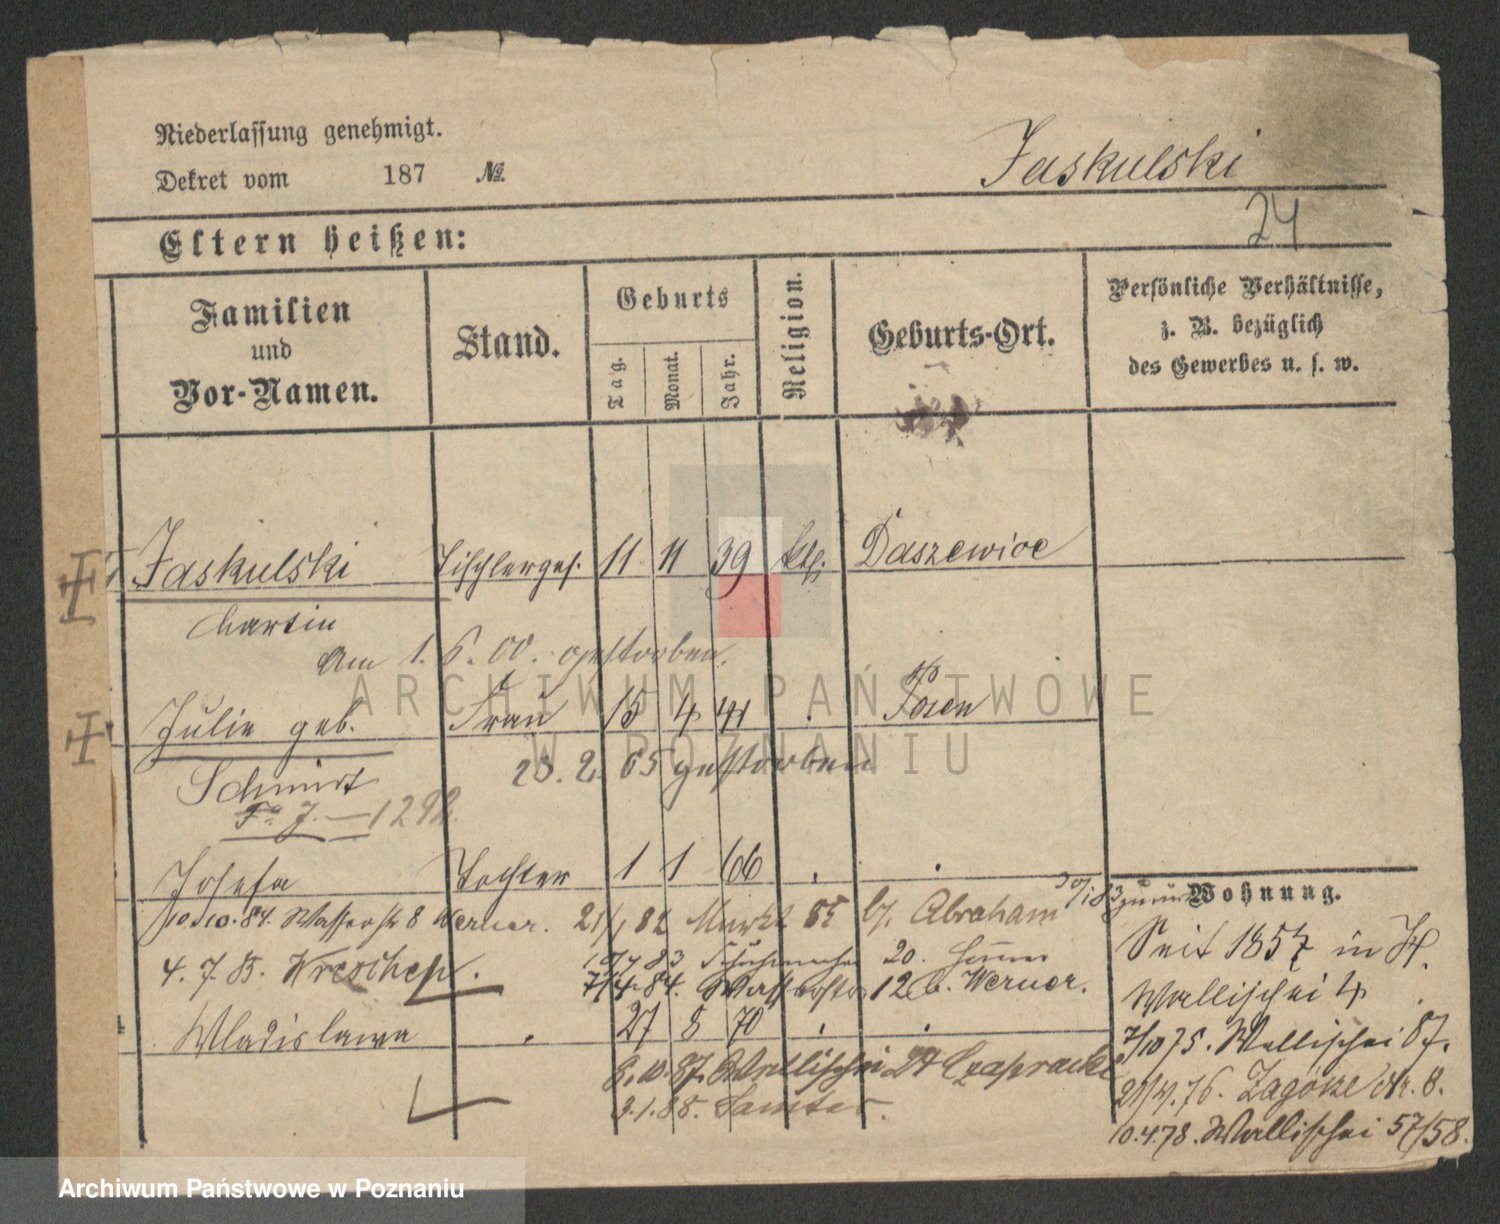 Niederlassung genehmigt.
Dekret vom 187 №
Jaskulski
24
Eltern heißen:
Familien und Vor-Namen.
Stand.
Geburts
Tag.
Monat.
Jahr.
Religion.
Geburts-Ort.
Persönliche Verhältnisse,
z. B. bezüglich
des Gewerbes u. s. w.
Jaskulski Tischlerges. 11 11 39 kth. Daszewice
Martin
Am 1. 6. 00. gestorben.
Julie geb. Frau 15 4 41 . Posen
23. 2. 65 gestorben
Schmidt
1292
Josefa Tochter 1 1 66 . .
10.10.84. Wasserstr 8 Werner. 21/1 82 Markt 85 b/. Abraham
Wohnung.
4. 7. 85. Wreschen. 83 20.
7/4 84. Wasserstr 12 b. Werner.
Wladislawa . 27 8 70 . .
8.10.87. Wallischei
3.1.88. Samter.
Seit 1857 in H.
Wallischei 4
7/10 75. Wallischei 87.
21/4.76. Zagórze Nr. 8.
10.4.78. Wallischei 57/58.
ARCHIWUM PAŃSTWOWE
W POZNANIU
Archiwum Państwowe w Poznaniu